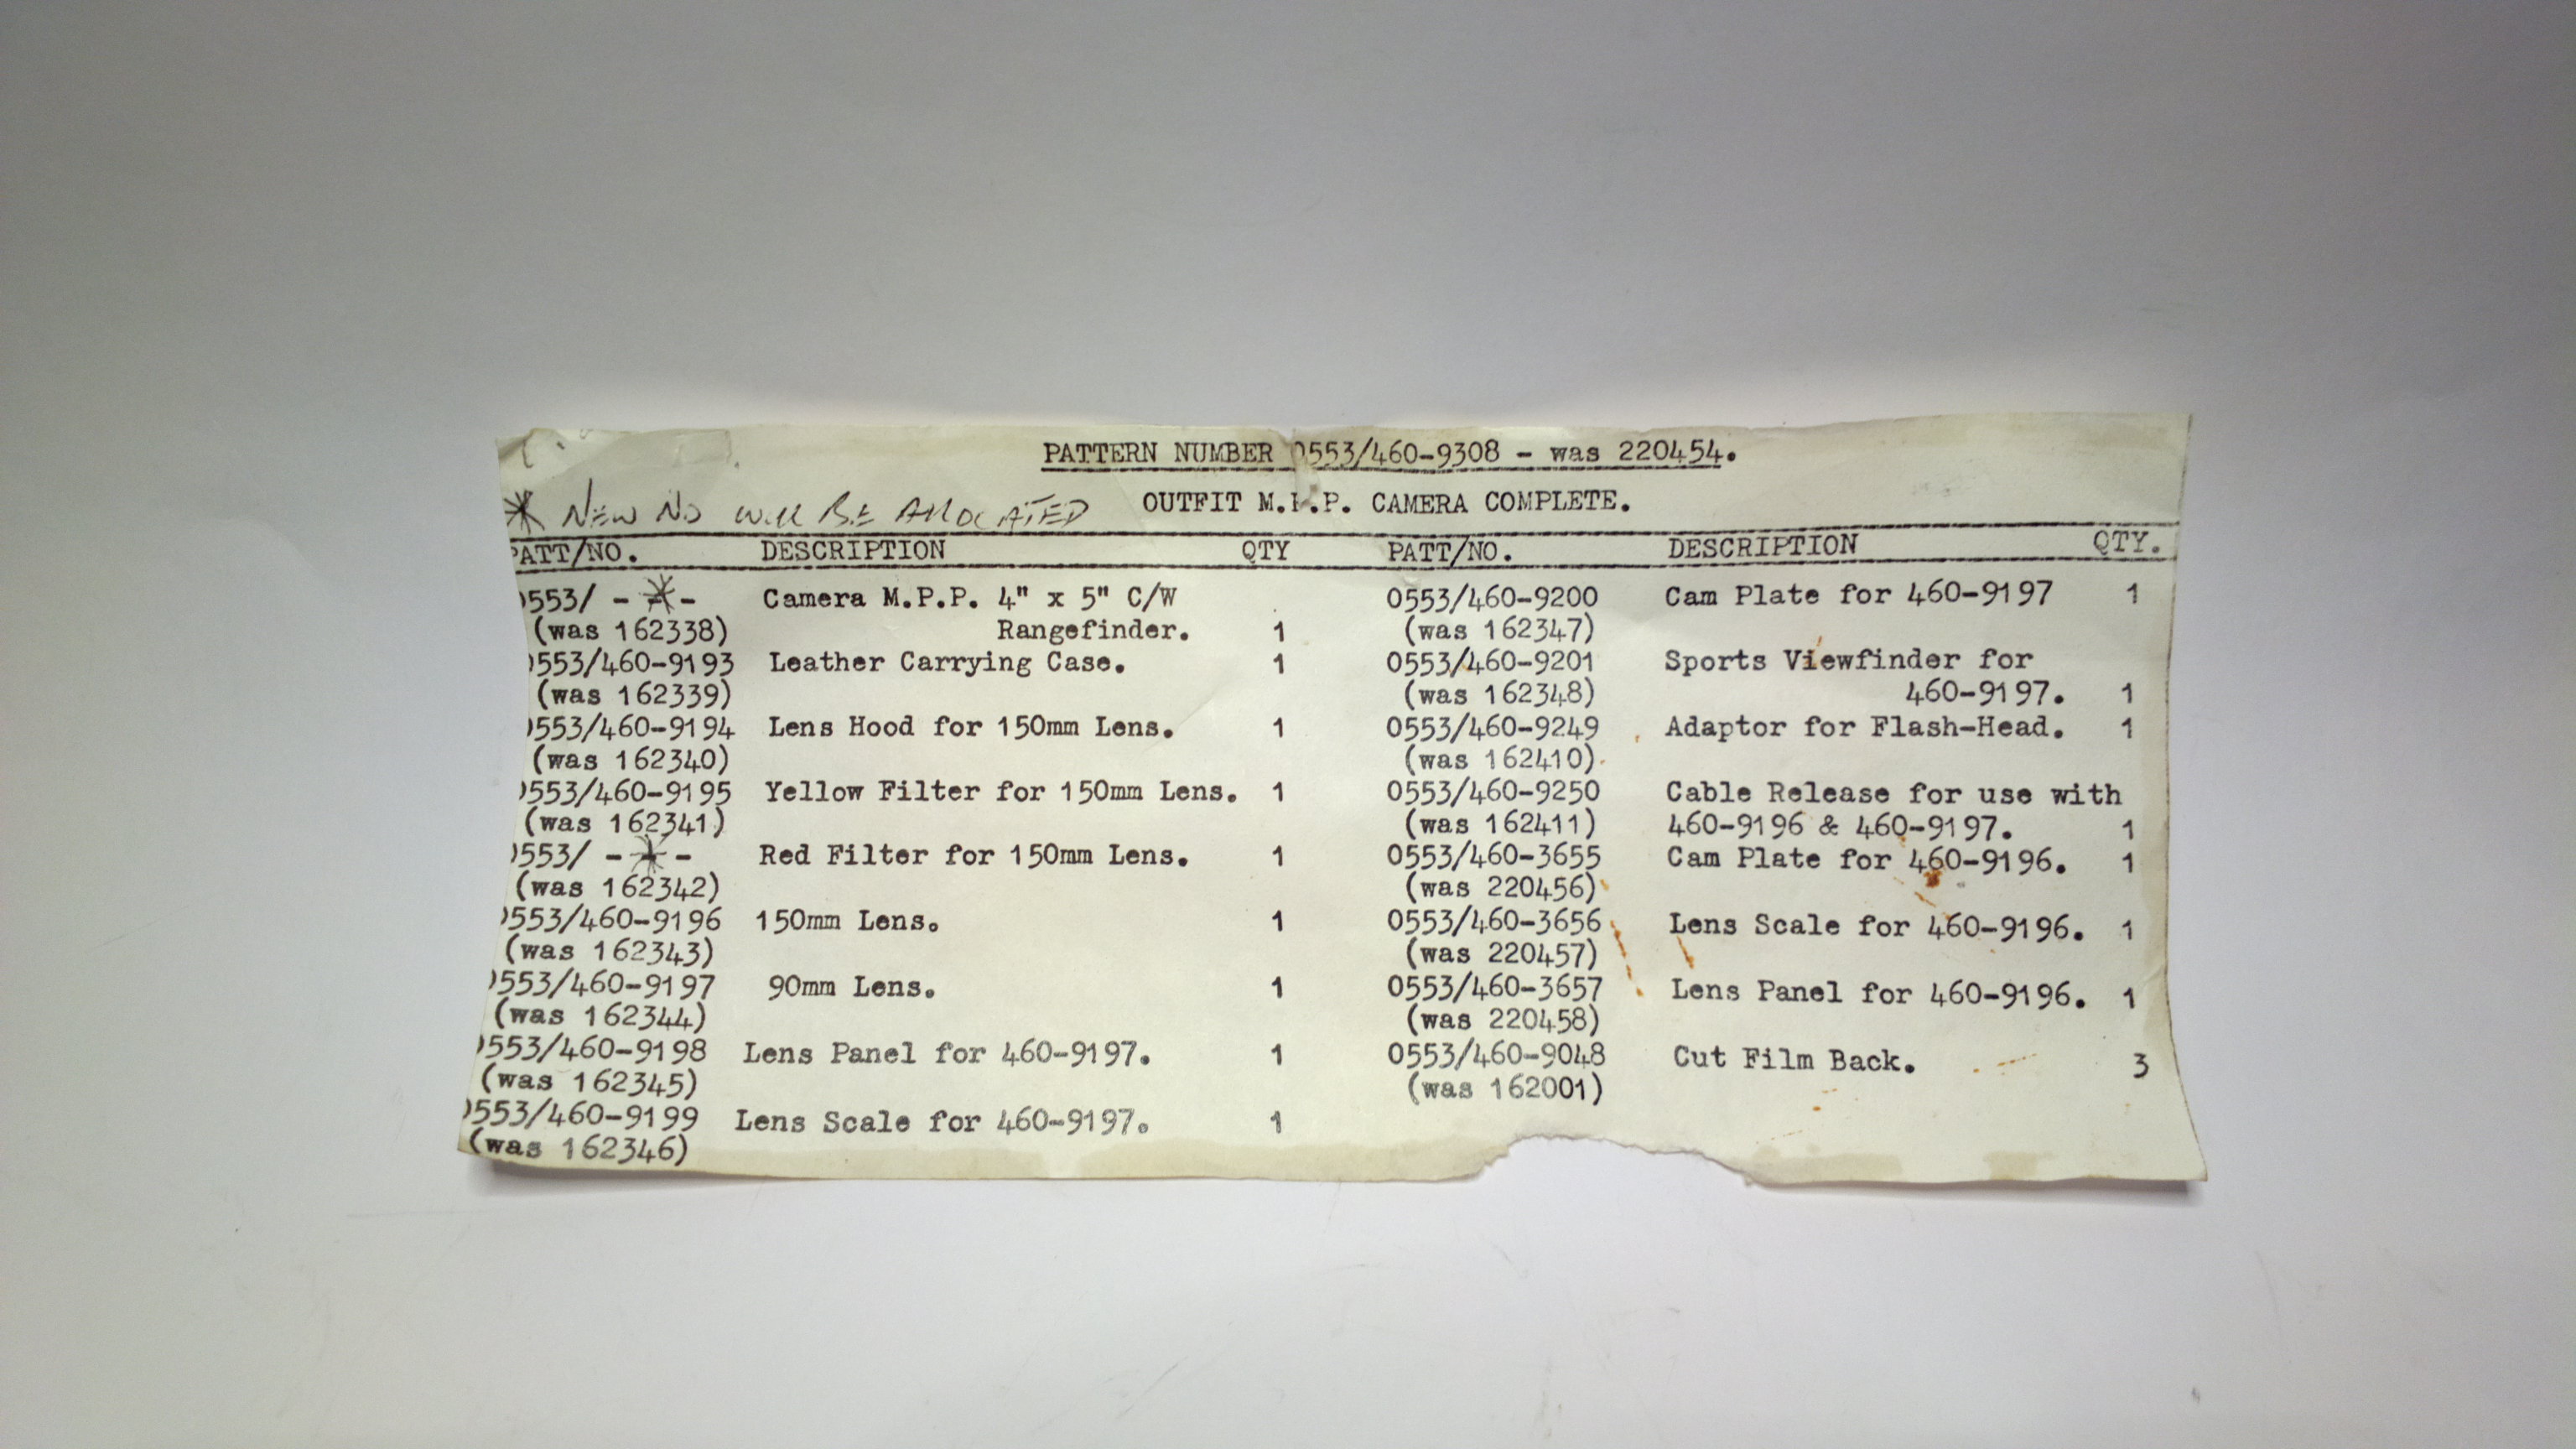 PATTERN NUMBER 0553/460-9308 - was 220454.
* NEW NO WILL BE ALLOCATED OUTFIT M.P.P. CAMERA COMPLETE.
PATT/NO. DESCRIPTION QTY PATT/NO. DESCRIPTION QTY.
0553/ - * - Camera M.P.P. 4" x 5" C/W 0553/460-9200 Cam Plate for 460-9197 1
(was 162338) Rangefinder. 1 (was 162347)
0553/460-9193 Leather Carrying Case. 1 0553/460-9201 Sports Viewfinder for
(was 162339) (was 162348) 460-9197. 1
0553/460-9194 Lens Hood for 150mm Lens. 1 0553/460-9249 Adaptor for Flash-Head. 1
(was 162340) (was 162410)
0553/460-9195 Yellow Filter for 150mm Lens. 1 0553/460-9250 Cable Release for use with
(was 162341) (was 162411) 460-9196 & 460-9197. 1
0553/ - * - Red Filter for 150mm Lens. 1 0553/460-3655 Cam Plate for 460-9196. 1
(was 162342) (was 220456)
0553/460-9196 150mm Lens. 1 0553/460-3656 Lens Scale for 460-9196. 1
(was 162343) (was 220457)
0553/460-9197 90mm Lens. 1 0553/460-3657 Lens Panel for 460-9196. 1
(was 162344) (was 220458)
0553/460-9198 Lens Panel for 460-9197. 1 0553/460-9048 Cut Film Back. 3
(was 162345) (was 162001)
0553/460-9199 Lens Scale for 460-9197. 1
(was 162346)